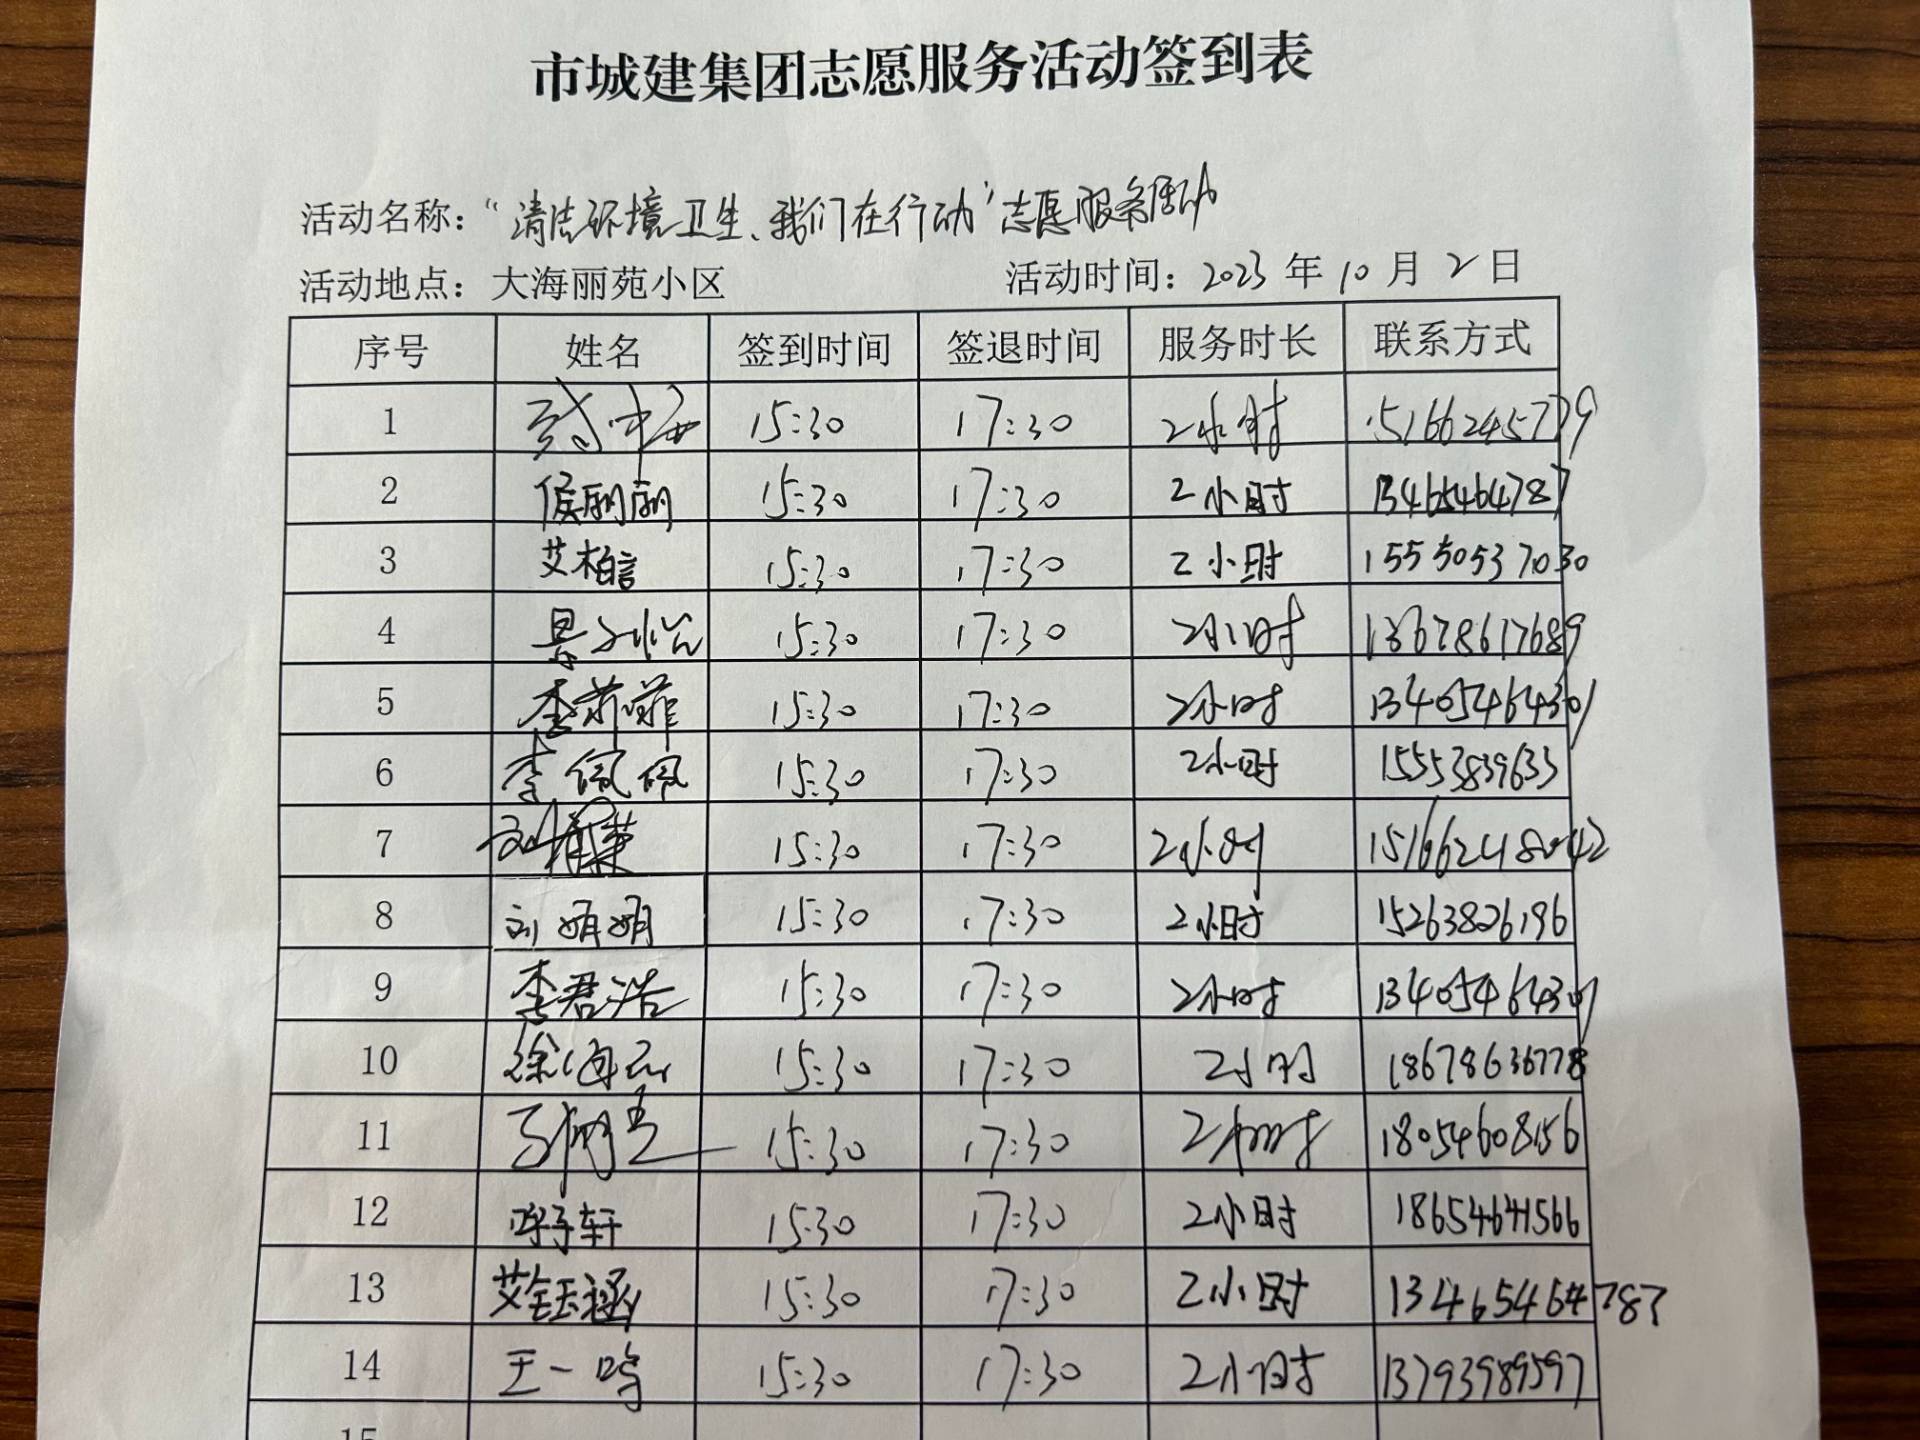 市城建集团志愿服务活动签到表
活动名称：“清洁环境卫生、我们在行动”志愿服务活动
活动地点：大海丽苑小区 活动时间：2023年10月2日
序号 姓名 签到时间 签退时间 服务时长 联系方式
1 15:30 17:30 2小时 15166245779
2 侯丽丽 15:30 17:30 2小时 13465464787
3 艾柏言 15:30 17:30 2小时 15550537030
4 景子怡 15:30 17:30 2小时 13678617689
5 李菲菲 15:30 17:30 2小时 13405464301
6 李佩佩 15:30 17:30 2小时 15553839633
7 15:30 17:30 2小时
8 刘娟娟 15:30 17:30 2小时 15263826196
9 李君浩 15:30 17:30 2小时 13405464301
10 15:30 17:30 2小时 18678636778
11 15:30 17:30 2小时 18054608156
12 15:30 17:30 2小时 18654641566
13 艾钰涵 15:30 17:30 2小时 13465464787
14 王一鸣 15:30 17:30 2小时 13793989597
15